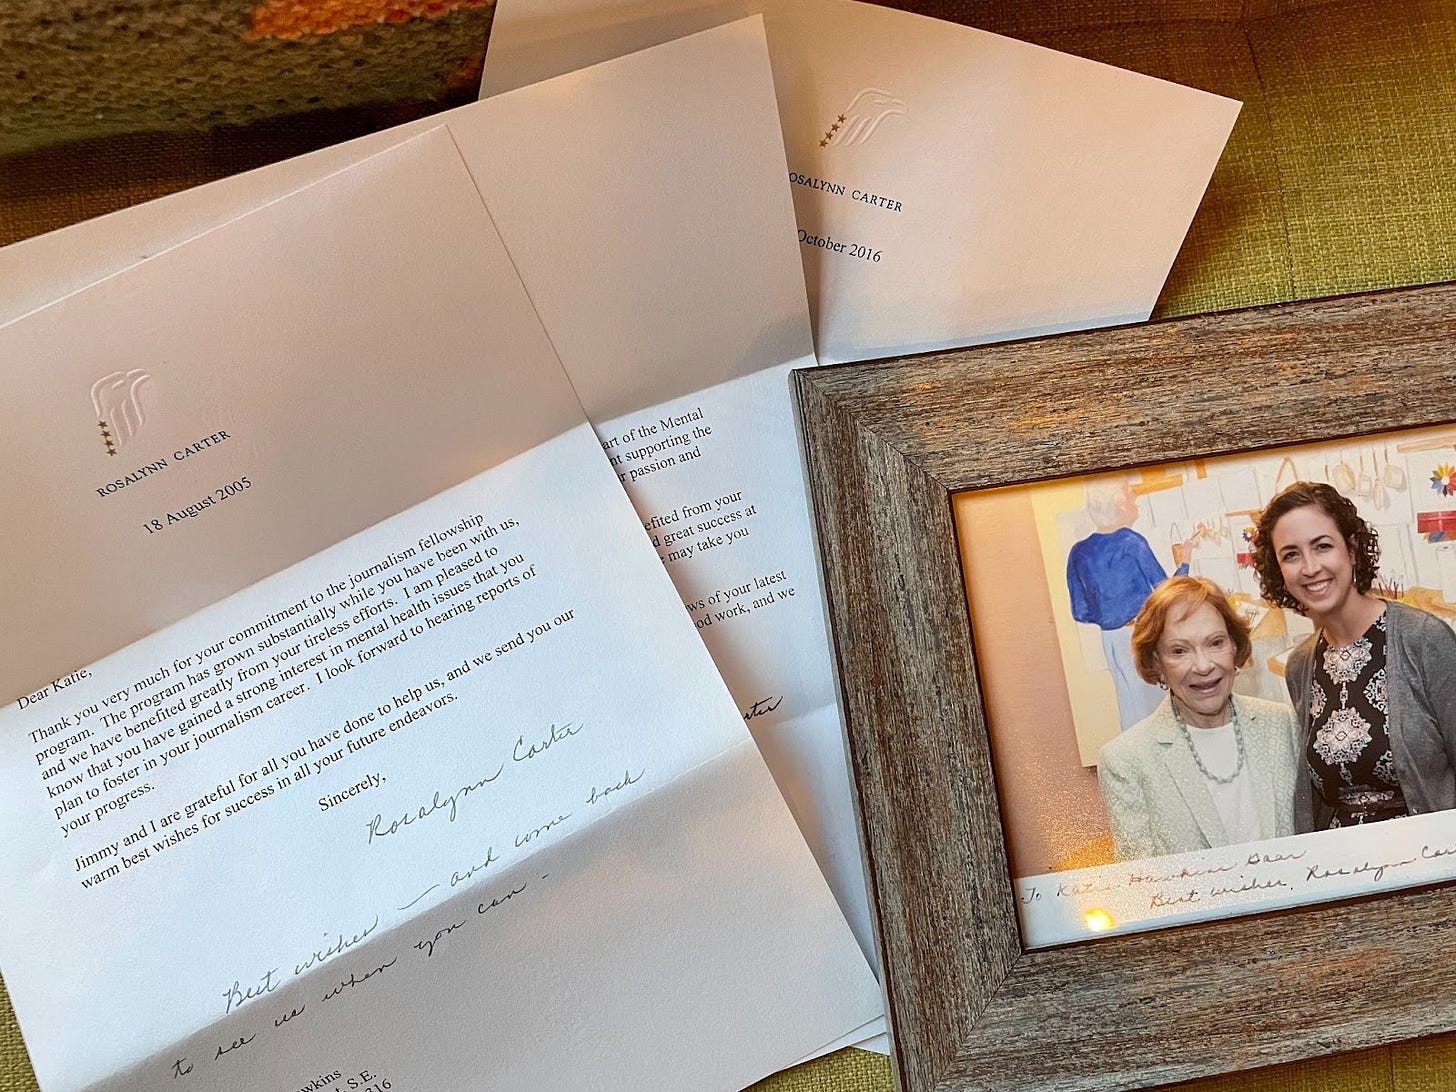 ROSALYNN CARTER
18 August 2005
Dear Katie,
Thank you very much for your commitment to the journalism fellowship
program. The program has grown substantially while you have been with us,
and we have benefited greatly from your tireless efforts. I am pleased to
know that you have gained a strong interest in mental health issues that you
plan to foster in your journalism career. I look forward to hearing reports of
your progress.
Jimmy and I are grateful for all you have done to help us, and we send you our
warm best wishes for success in all your future endeavors.
Sincerely,
Rosalynn Carter
Best wishes — and come back
to see us when you can -
wkins
S.E.
316
art of the Mental
nt supporting the
r passion and
efited from your
d great success at
e may take you
ws of your latest
od work, and we
rter
OSALYNN CARTER
October 2016
To Katie Hawkins Gaar
Best wishes, Rosalynn Car